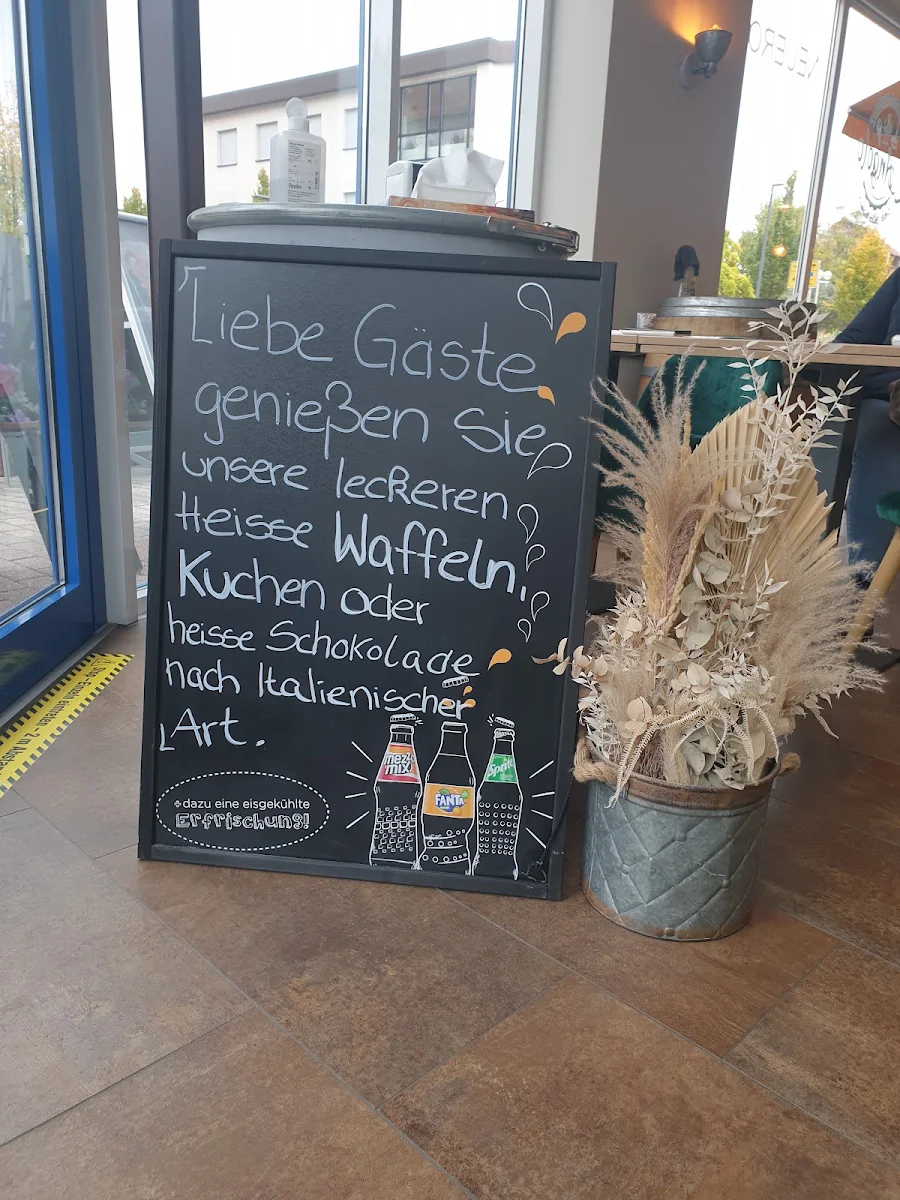 Liebe Gäste
genießen Sie
unsere leckeren
Heisse Waffeln,
Kuchen oder
heisse Schokolade
nach Italienischer
Art.
+dazu eine eisgekühlte
Erfrischung!
mezzo
mix
FANTA
Sprite
NEUERÖ